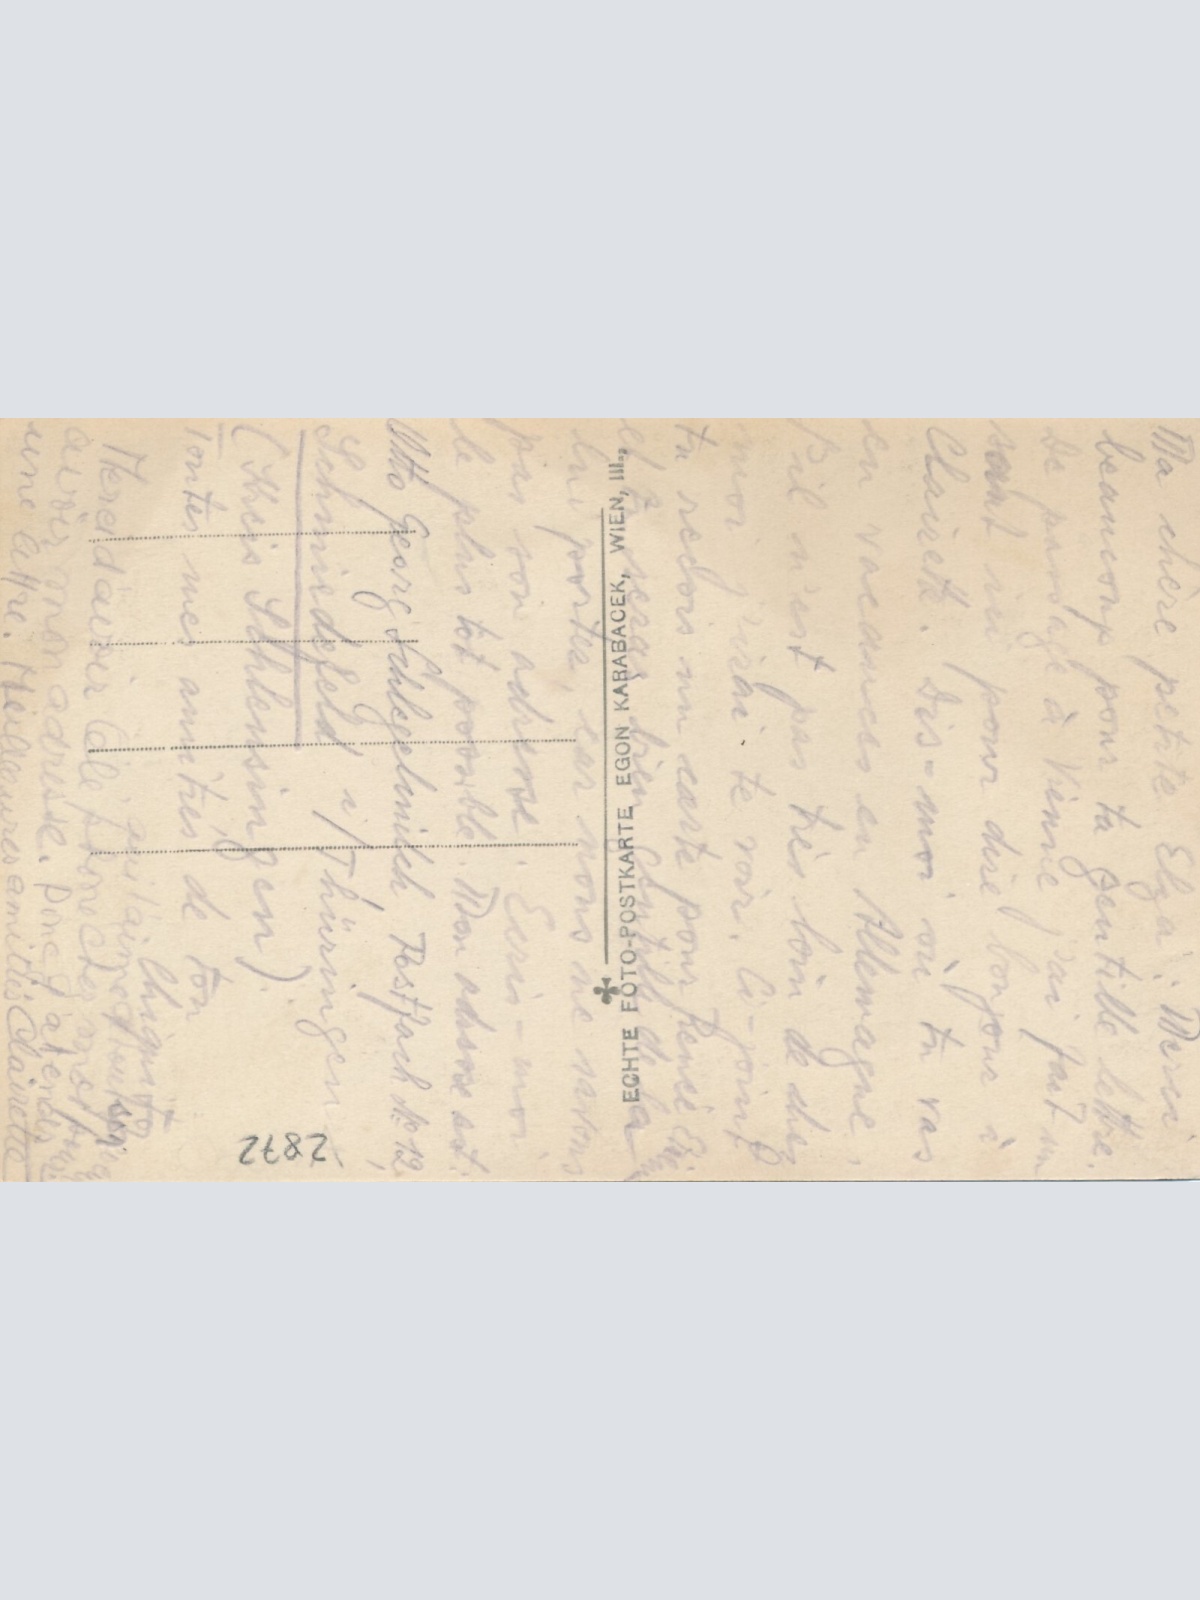 Ma chère petite Elza! Merci
beaucoup pour ta gentille lettre.
à Vienne j'ai fait un
saut ici pour dire bonjour à
Clairette. Dis-moi où tu vas
en vacances en Allemagne,
s'il n'est pas très loin de chez
moi j'irai te voir. Ci-joint
tu reçois un carte pour Renée
et tu seras bien gentille de la
lui porter, car nous ne savons
pas son adresse. Ecris-moi
le plus tôt possible. Mon adresse est:
Otto Georg Schlegelmilch, Postfach No 12,
Schmiedefeld i/Thüringen
(Kreis Schleusingen).
Toutes mes amitiés de ton
Merci d'avoir
avoir mon adresse. Donc j'attends
une lettre. Meilleures amitiés Clairette
ECHTE FOTO-POSTKARTE EGON KARABACEK, WIEN, III.,
2872